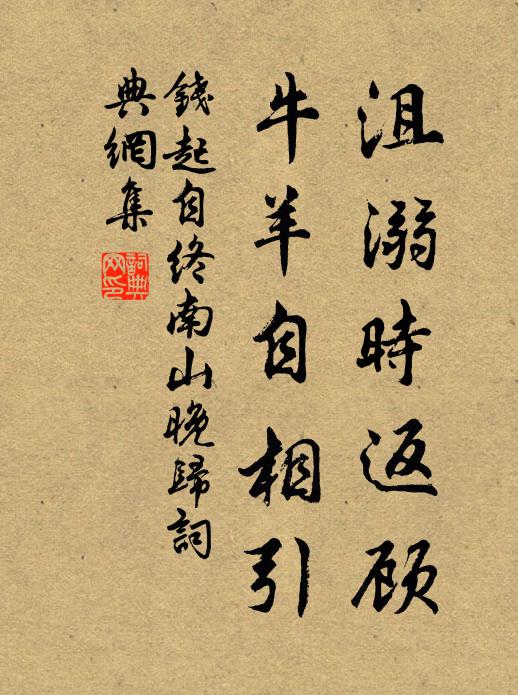 沮溺時返顧
牛羊自相引
錢起自終南山晚歸詞
典網集
詞典網印